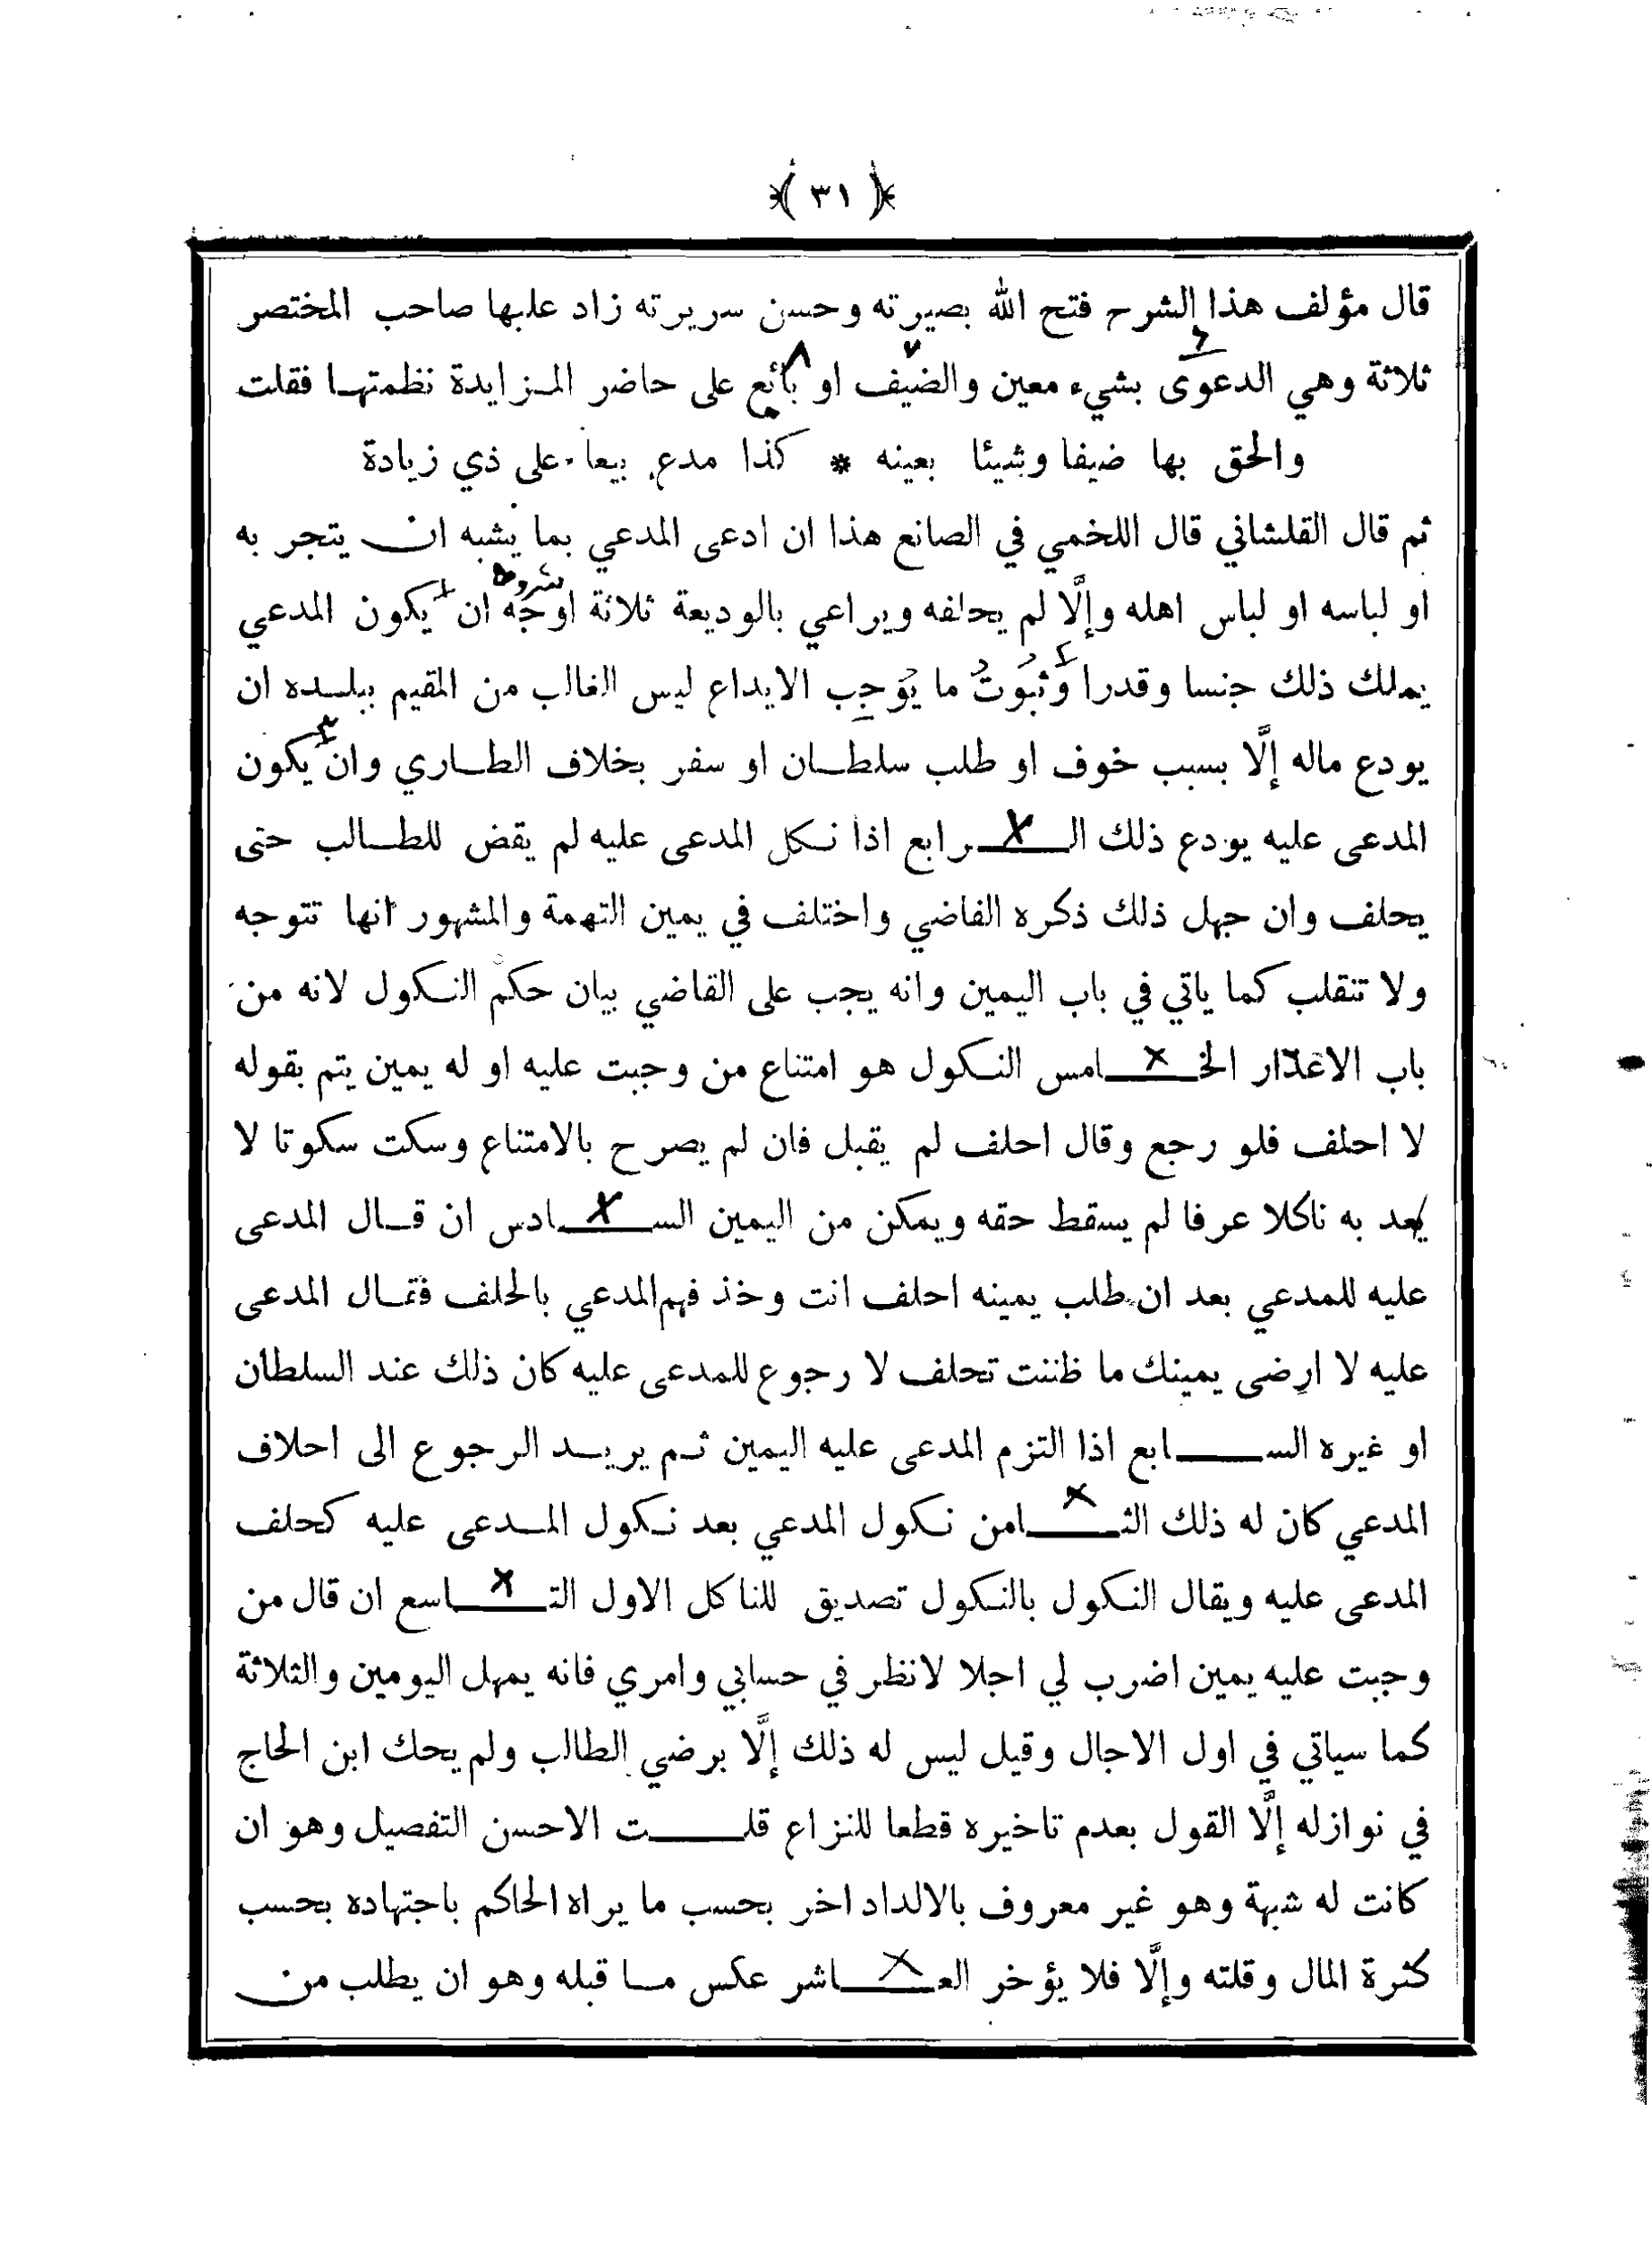 ﴿ ٣١ ﴾
قال مؤلف هذا الشرح فتح الله بصيرته وحسن سريرته زاد عليها صاحب المختصر
ثلاثة وهي الدعوى بشيء معين والضيف او بائع على حاضر المزايدة نظمتها فقلت
والحق بها ضيفا وشيئا بعينه * كذا مدع بيعا على ذي زيادة
ثم قال القلشاني قال اللخمي في الصانع هذا ان ادعى المدعي بما يشبه ان يتجر به
شروط
او لباسه او لباس اهله وإلَّا لم يحلفه ويراعي بالوديعة ثلاثة اوجه ان يكون المدعي
يملك ذلك جنسا وقدرا وثبوتُ ما يوجب الايداع ليس الغالب من المقيم ببلده ان
يودع ماله إلَّا بسبب خوف او طلب سلطان او سفر بخلاف الطاري وان يكون
المدعى عليه يودع ذلك الـــرابع اذا نكل المدعى عليه لم يقض للطالب حتى
يحلف وان جهل ذلك ذكره القاضي واختلف في يمين التهمة والمشهور انها تتوجه
ولا تنقلب كما ياتي في باب اليمين وانه يجب على القاضي بيان حكم النكول لانه من
باب الاعذار الخـــامس النكول هو امتناع من وجبت عليه او له يمين يتم بقوله
لا احلف فلو رجع وقال احلف لم يقبل فان لم يصرح بالامتناع وسكت سكوتا لا
يعد به ناكلا عرفا لم يسقط حقه ويمكن من اليمين الســـادس ان قال المدعى
عليه للمدعي بعد ان طلب يمينه احلف انت وخذ فهم المدعي بالحلف فقال المدعى
عليه لا ارضى يمينك ما ظننت تحلف لا رجوع للمدعى عليه كان ذلك عند السلطان
او غيره الســـابع اذا التزم المدعى عليه اليمين ثم يريد الرجوع الى احلاف
المدعي كان له ذلك الثـــامن نكول المدعي بعد نكول المدعى عليه كحلف
المدعى عليه ويقال النكول بالنكول تصديق للناكل الاول التـــاسع ان قال من
وجبت عليه يمين اضرب لي اجلا لانظر في حسابي وامري فانه يمهل اليومين والثلاثة
كما سياتي في اول الاجال وقيل ليس له ذلك إلَّا برضي الطالب ولم يحك ابن الحاج
في نوازله إلَّا القول بعدم تاخيره قطعا للنزاع قلـــت الاحسن التفصيل وهو ان
كانت له شبهة وهو غير معروف بالالداد اخر بحسب ما يراه الحاكم باجتهاده بحسب
كثرة المال وقلته وإلَّا فلا يؤخر العـــاشر عكس ما قبله وهو ان يطلب من